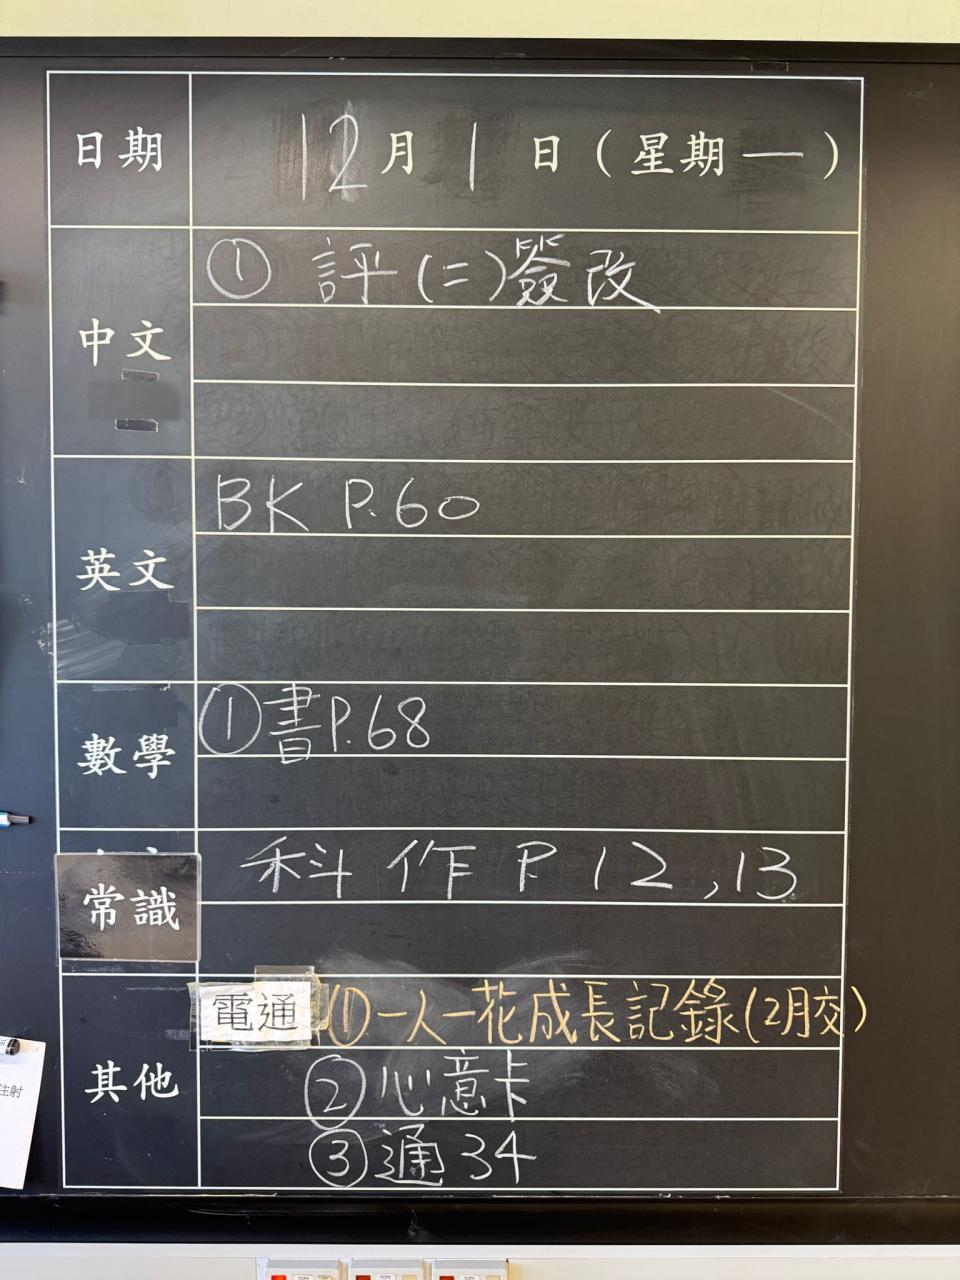 日期 12月1日(星期一)
中文 ① 評(二)簽改
英文 BK P.60
數學 ①書P.68
常識 科作P.12,13
其他 電通 ①一人一花成長記錄(2月交)
②心意卡
③通34
注射